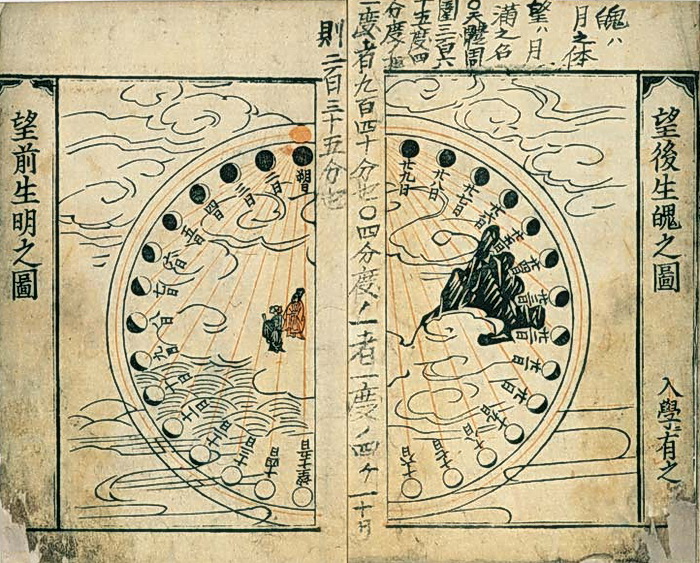 魄ハ
月之体
望ハ月
満之名
〇天體周
圍三百六
十五度四
分度ノ一
一度者九百四十分也〇四分度ノ一者一度ノ四ケ一
則二百三十五分也
望後生魄之圖
入學有之
廿九日
廿八日
廿七日
廿六日
廿五日
廿四日
廿三日
廿二日
廿一日
廿日
十九日
十八日
十七日
十六日
朔日
二日
三日
四日
五日
六日
七日
八日
九日
十日
十一日
十二日
十三日
十四日
望十五日
望前生明之圖